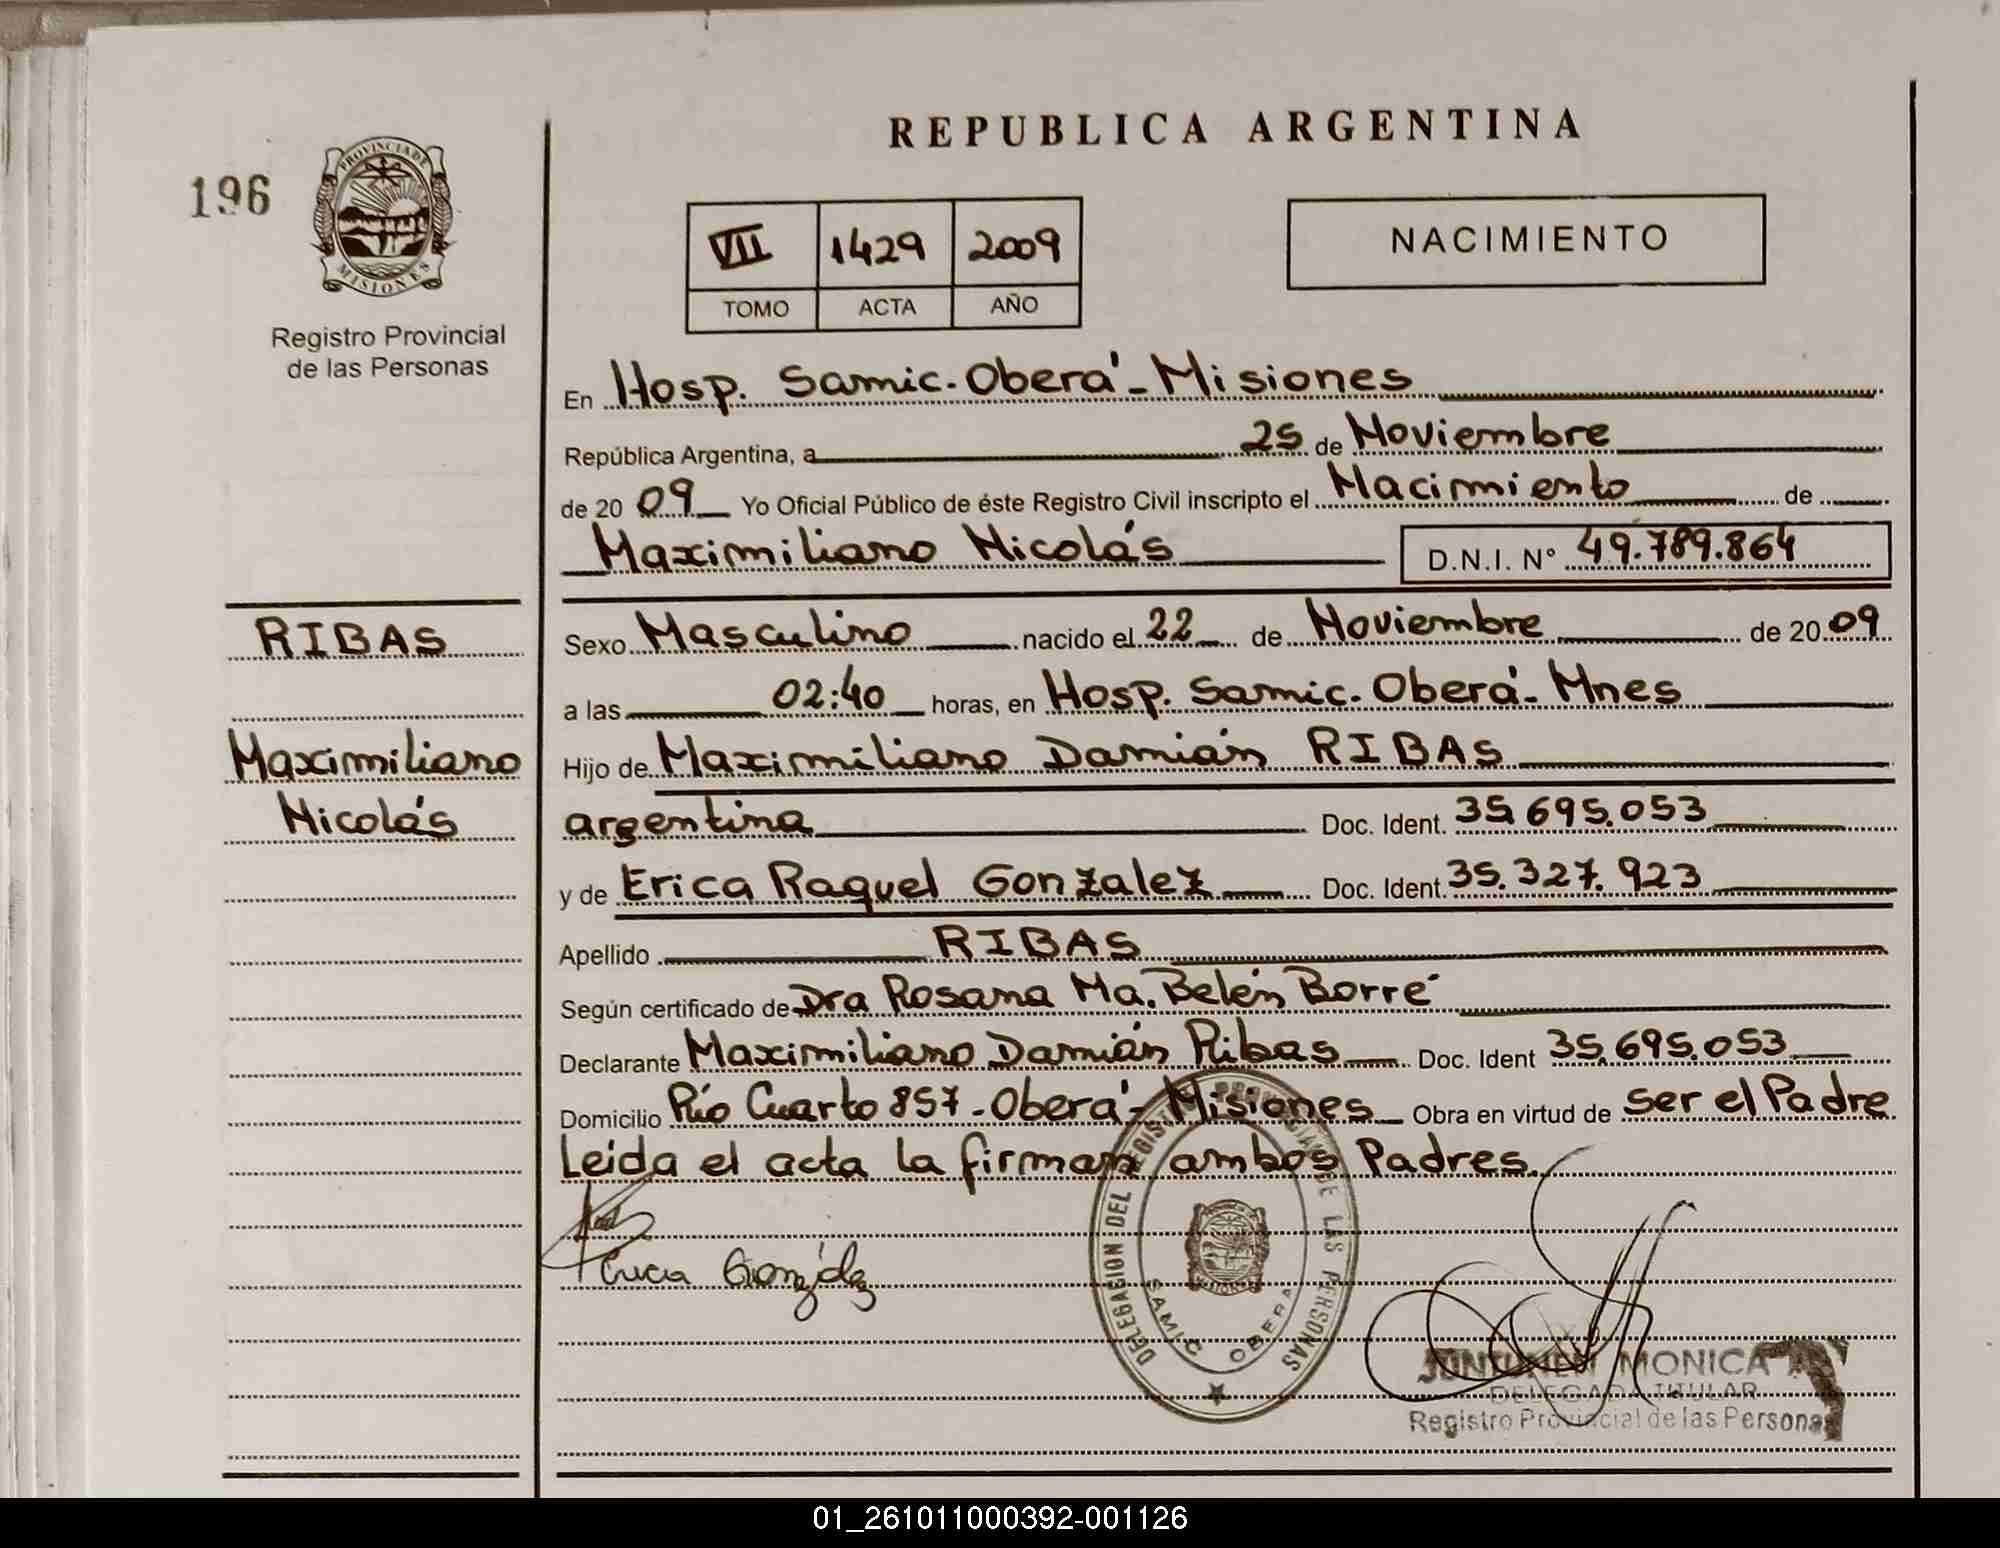 REPUBLICA ARGENTINA
196
PROVINCIA DE
MISIONES
Registro Provincial
de las Personas
VII 1429 2009
TOMO ACTA AÑO
NACIMIENTO
En Hosp. Samic. Oberá - Misiones
República Argentina, a 25 de Noviembre
de 2009 Yo Oficial Público de éste Registro Civil inscripto el Nacimiento de
Maximiliano Nicolás D.N.I. N° 49.789.864
RIBAS
Maximiliano
Nicolás
Sexo Masculino nacido el 22 de Noviembre de 2009
a las 02:40 horas, en Hosp. Samic. Oberá - Mnes
Hijo de Maximiliano Damián RIBAS
argentina Doc. Ident. 35.695.053
y de Erica Raquel Gonzalez Doc. Ident. 35.327.923
Apellido RIBAS
Según certificado de Dra Rosana Ma. Belén Borré
Declarante Maximiliano Damián Ribas Doc. Ident 35.695.053
Domicilio Río Cuarto 857 - Oberá - Misiones Obra en virtud de ser el Padre
Leida el acta la firman ambos Padres.
González
DELEGACION DEL REGISTRO PROVINCIAL DE LAS PERSONAS
SAMIC OBERA
MISIONES
JUNTUNEN MONICA
DELEGADA TITULAR
Registro Provincial de las Personas
01_261011000392-001126